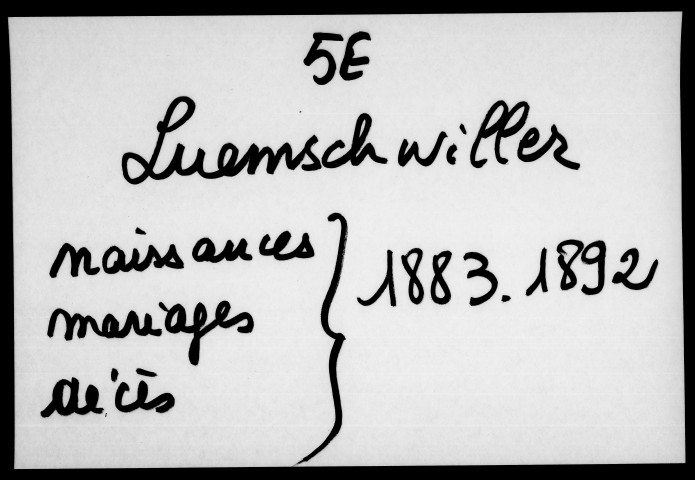 5E
Luemschwiller
naissances
mariages
décès
1883.1892